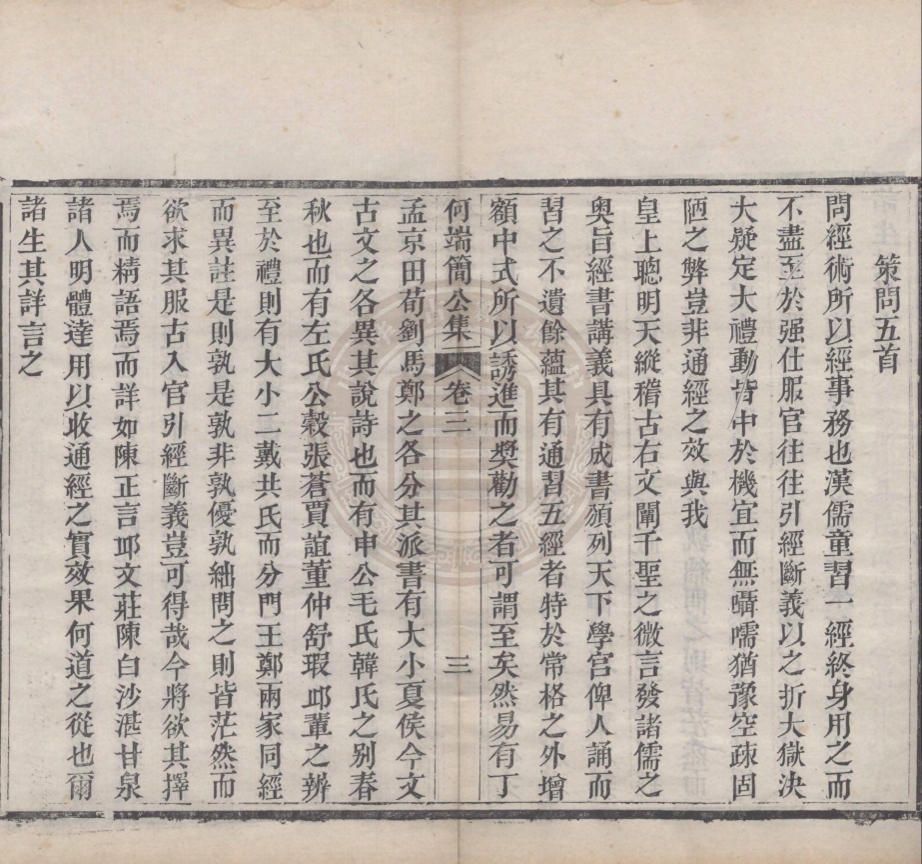 策問五首
問經術所以經事務也漢儒童習一經終身用之而
不盡至於强仕服官往往引經斷義以之折大獄決
大疑定大禮動皆中於機宜而無囁嚅猶豫空疎固
陋之弊豈非通經之效與我
皇上聰明天縱稽古右文闡千聖之微言發諸儒之
奥旨經書講義具有成書頒列天下學宮俾人誦而
習之不遺餘蘊其有通習五經者特於常格之外增
額中式所以誘進而奬勸之者可謂至矣然易有丁
何端簡公集 卷三 三
孟京田荀劉馬鄭之各分其派書有大小夏侯今文
古文之各異其說詩也而有申公毛氏韓氏之别春
秋也而有左氏公穀張蒼賈誼董仲舒瑕邱輩之辨
至於禮則有大小二戴共氏而分門王鄭兩家同經
而異註是則孰是孰非孰優孰絀問之則皆茫然而
欲求其服古入官引經斷義豈可得哉今將欲其擇
焉而精語焉而詳如陳正言邱文莊陳白沙湛甘泉
諸人明體達用以收通經之實效果何道之從也爾
諸生其詳言之